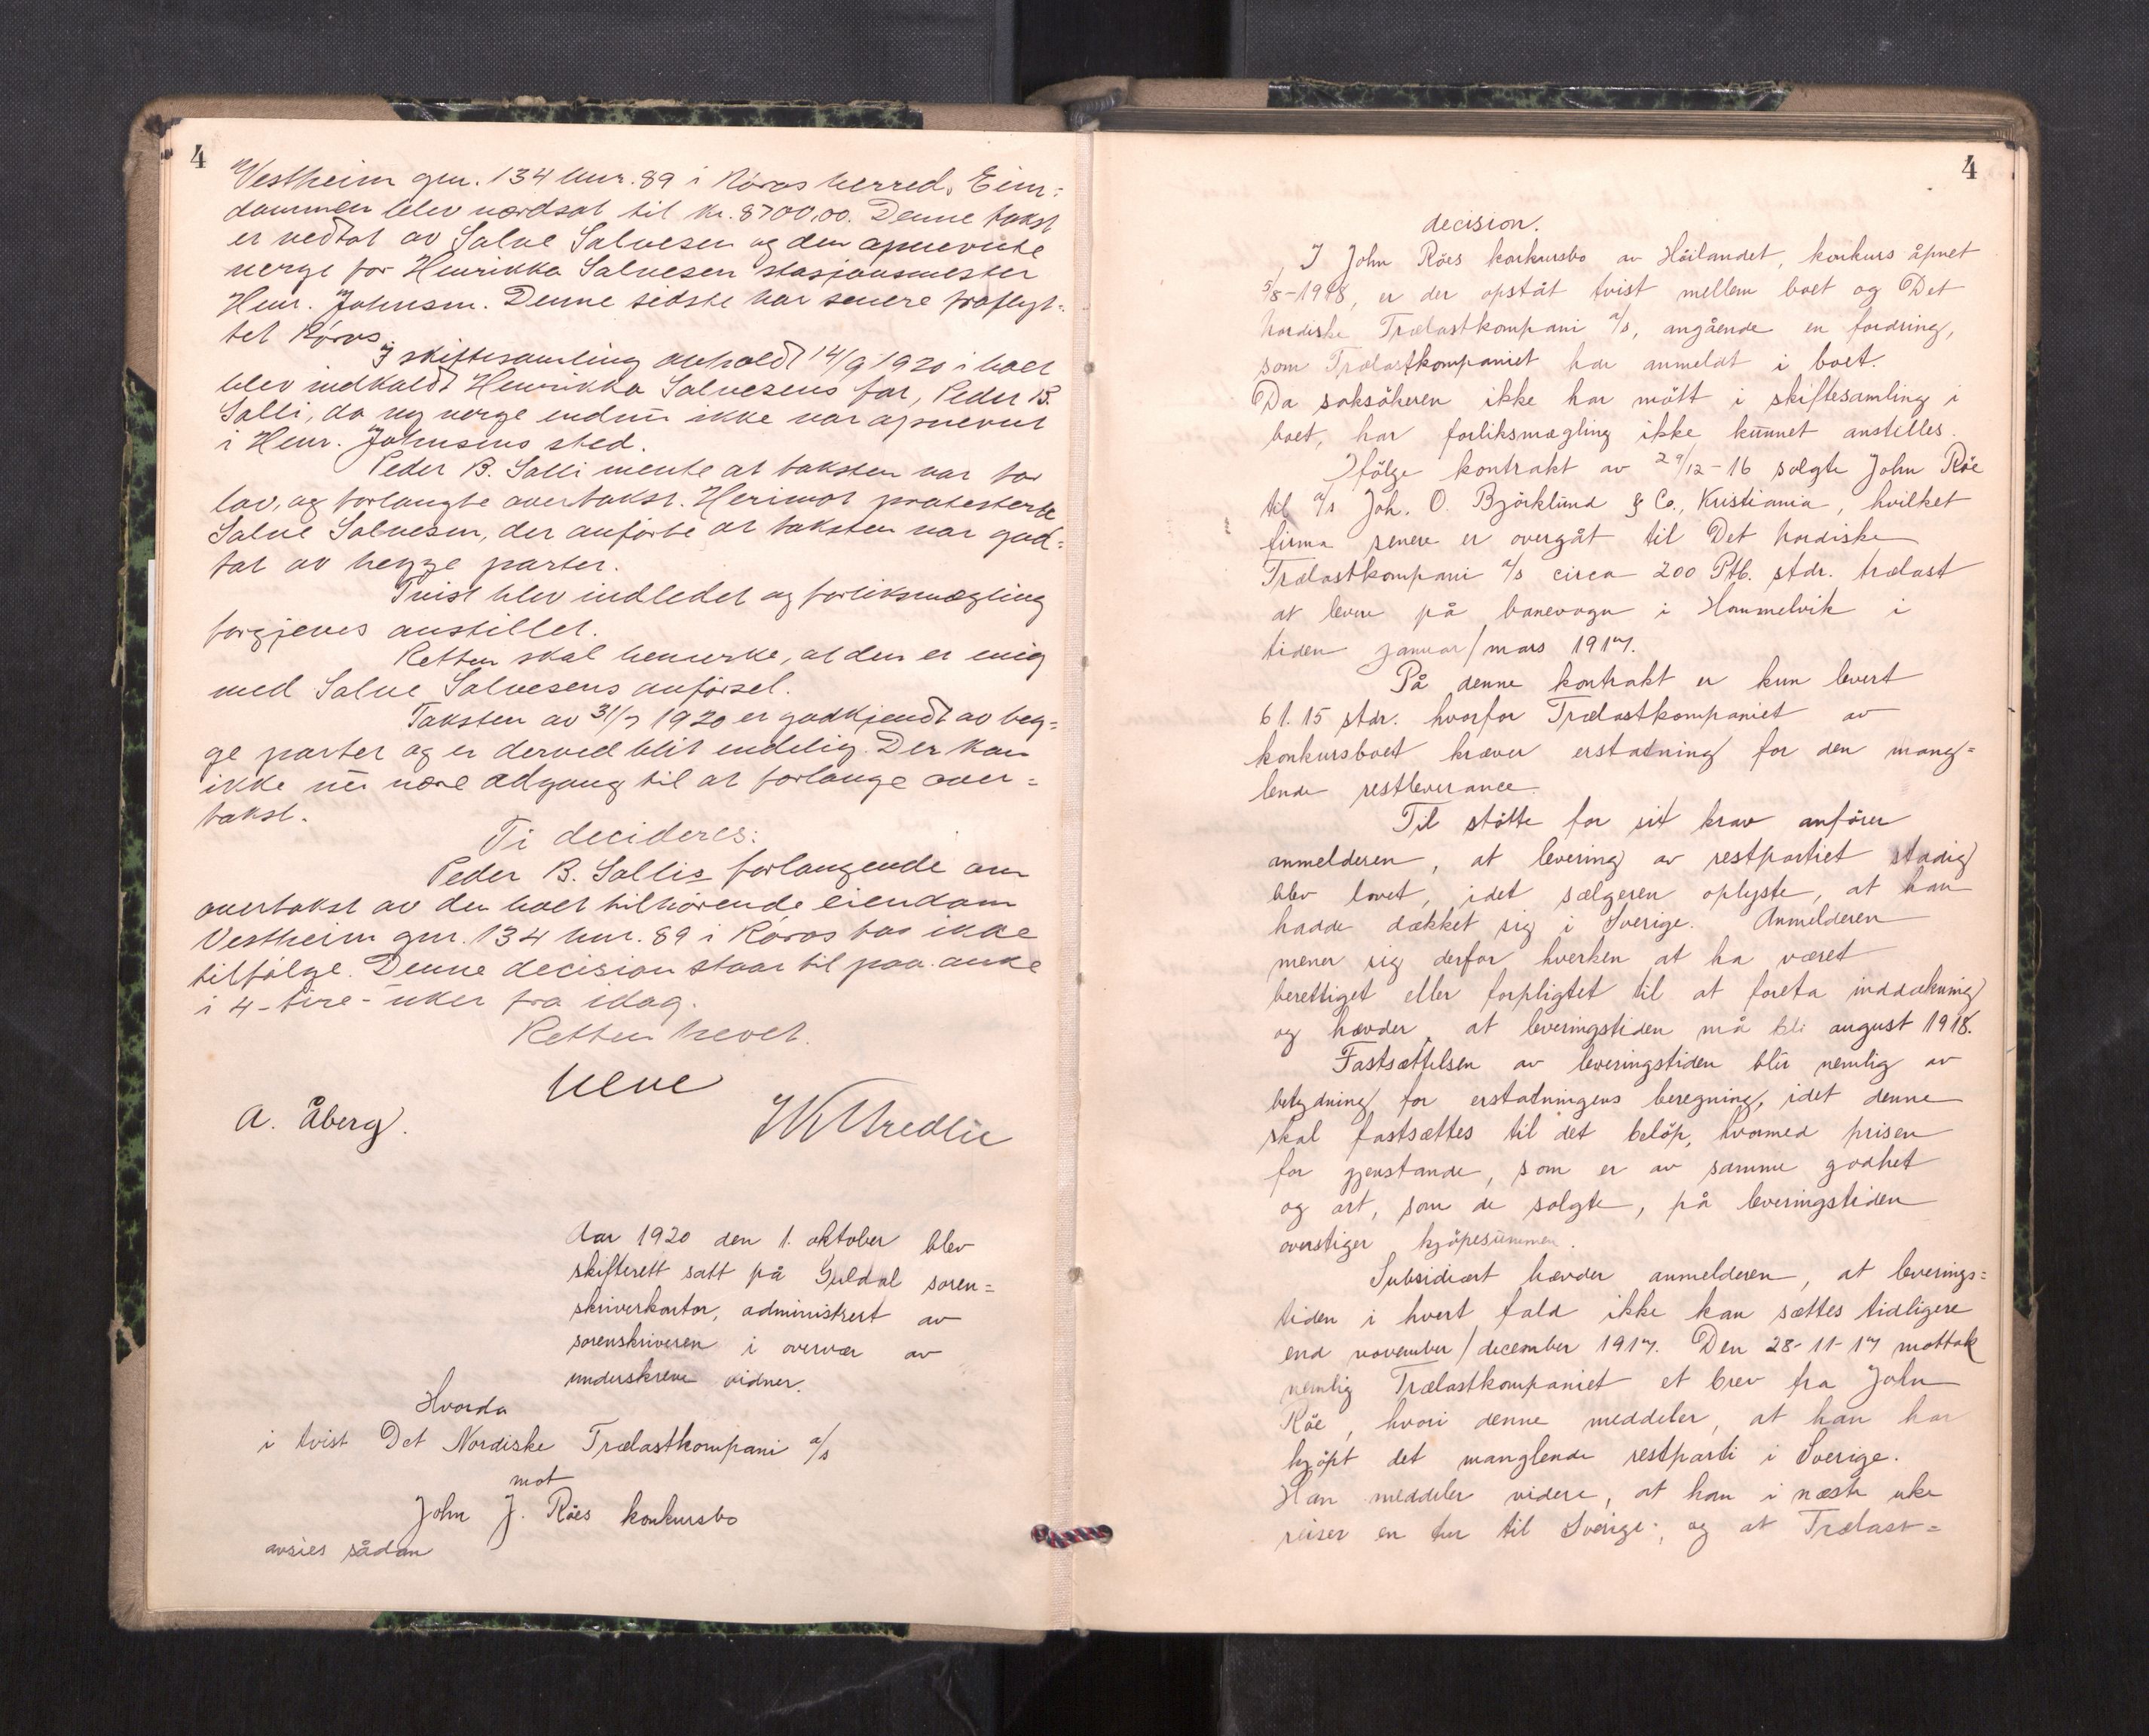 4
Vestheim gnr. 134 bnr. 89 i Røros herred. Eien=
dommen blev værdsat til kr. 8700,00. Denne takst
er vedtat av Salve Salvesen og den opnevnte
verge for Henrikka Salvesen stasjonsmester
Henr. Johnsen. Denne sidste har senere fraflyt-
tet Røros.
I skiftesamling avholdt 14/9 1920 i boet
blev indkaldt Henrikka Salvesens far, Peder B.
Galli, da ny verge endnu ikke var opnevnt
i Henr. Johnsens sted.
Peder B. Galli mente at taksten var for
lav, og forlangte overtakst. Herimot protesterte
Salve Salvesen, der anførte at taksten var god=
tat av begge parter.
Tvist blev indledet og forliksmægling
forgjeves anstillet.
Retten skal bemerke, at den er enig
med Salve Salvesens anførsel.
Taksten av 31/7 1920 er godkjendt av beg=
ge parter og er derved blit endelig. Der kan
ikke nu være adgang til at forlange over=
takst.
Ti decideres:
Peder B. Gallis forlangende om
overtakst av den boet tilhørende eiendom
Vestheim gnr. 134 bnr. 89 i Røros tas ikke
tilfølge. Denne decision staar til paa anke
i 4-fire-uker fra idag.
Retten hevet.
A. Åberg.
Aar 1920 den 1. oktober blev
skifterett satt på Guldal soren=
skriverkontor, administrert av
sorenskriveren i overvær av
underskrevne vidner.
Hvorda
i tvist Det Nordiske Trælastkompani a/s
mot
John J. Röes konkursbo
avsies sådan
4
decision.
I John Röes konkursbo av Höilandet, konkurs åpnet
5/8-1918, er der opståt tvist mellem boet og Det
Nordiske Trælastkompani a/s, angående en fordring,
som Trælastkompaniet har anmeldt i boet.
Da saksökeren ikke har mött i skiftesamling i
boet, har forliksmægling ikke kunnet anstilles.
Ifölge kontrakt av 29/12-16 solgte John Röe
til a/s Joh. O. Björklund & Co., Kristiania, hvilket
firma senere er overgåt til Det Nordiske
Trælastkompani a/s circa 200 Ptb. stdr. trælast
at levere på banevogn i Hommelvik i
tiden januar/mars 1917.
På denne kontrakt er kun levert
61.15 stdr. hvorfor Trælastkompaniet av
konkursboet kræver erstatning for den mang=
lende restleverance.
Til stötte for sit krav anförer
anmelderen, at levering av restpartiet stadig
blev lovet, idet sælgeren oplyste, at han
hadde dækket sig i Sverige. Anmelderen
mener sig derfor hverken at ha været
berettiget eller forpligtet til at foreta inddækning
og hævder, at leveringstiden må bli august 1918.
Fastsættelsen av leveringstiden blir nemlig av
betydning for erstatningens beregning, idet denne
skal fastsættes til det belöp, hvormed prisen
for gjenstande, som er av samme godhet
og art, som de solgte, på leveringstiden
overstiger kjöpesummen.
Subsidiært hævder anmelderen, at leverings=
tiden i hvert fald ikke kan sættes tidligere
end november/december 1917. Den 28-11-17 mottok
nemlig Trælastkompaniet et brev fra John
Röe, hvori denne meddeler, at han har
kjöpt det manglende restparti i Sverige.
Han meddeler videre, at han i næste uke
reiser en tur til Sverige, og at Trælast=